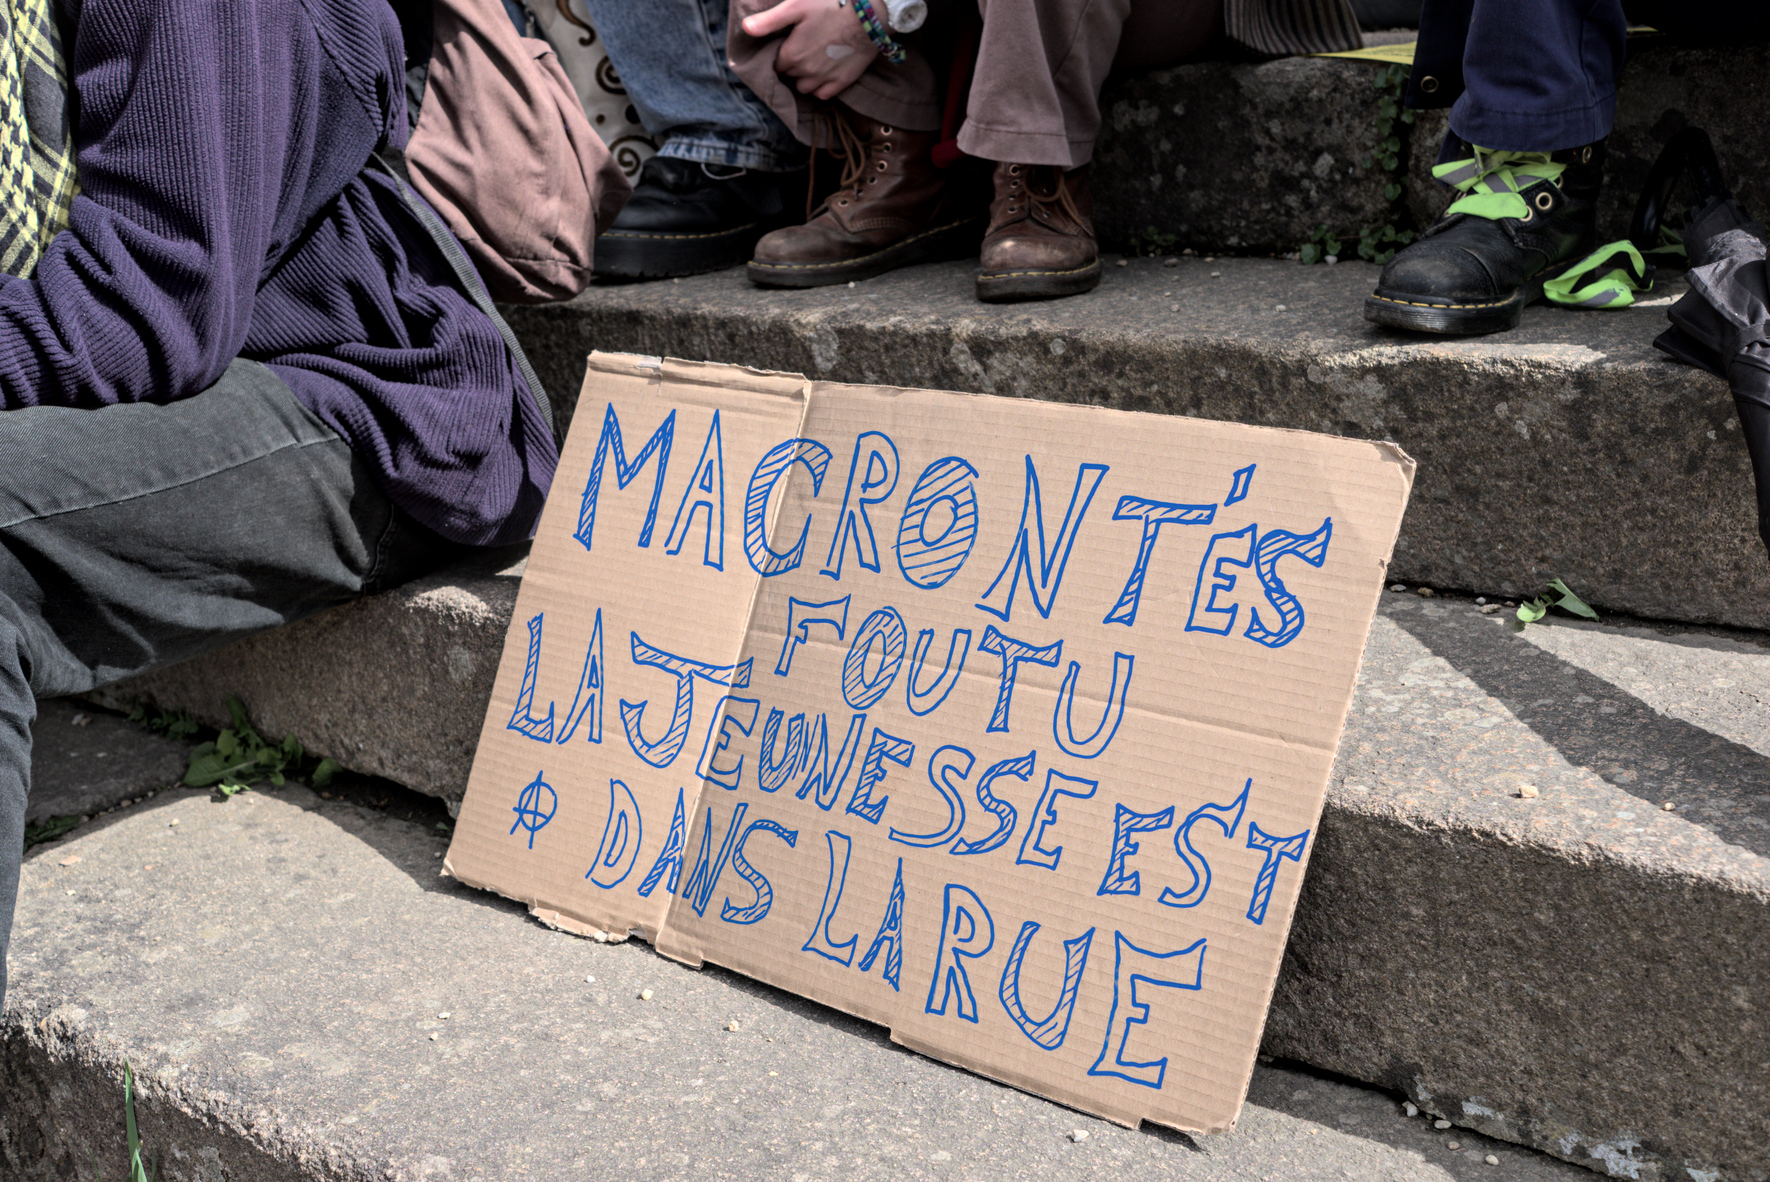 MACRON T'ES
FOUTU
LA JEUNESSE EST
DANS LA RUE